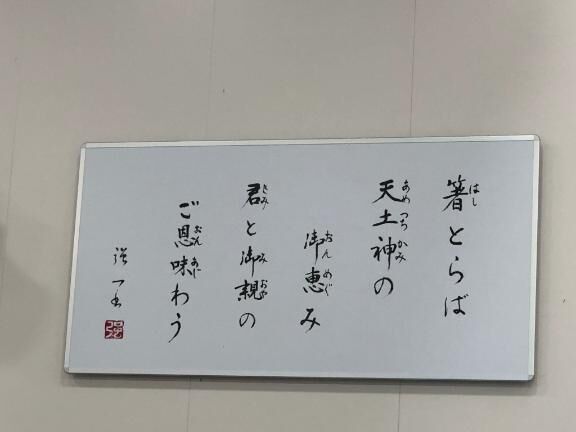 箸とらば
はし
天土神の
あめ つち かみ
御恵み
おん めぐ
君と御親の
きみ み おや
ご恩味わう
おん あじ